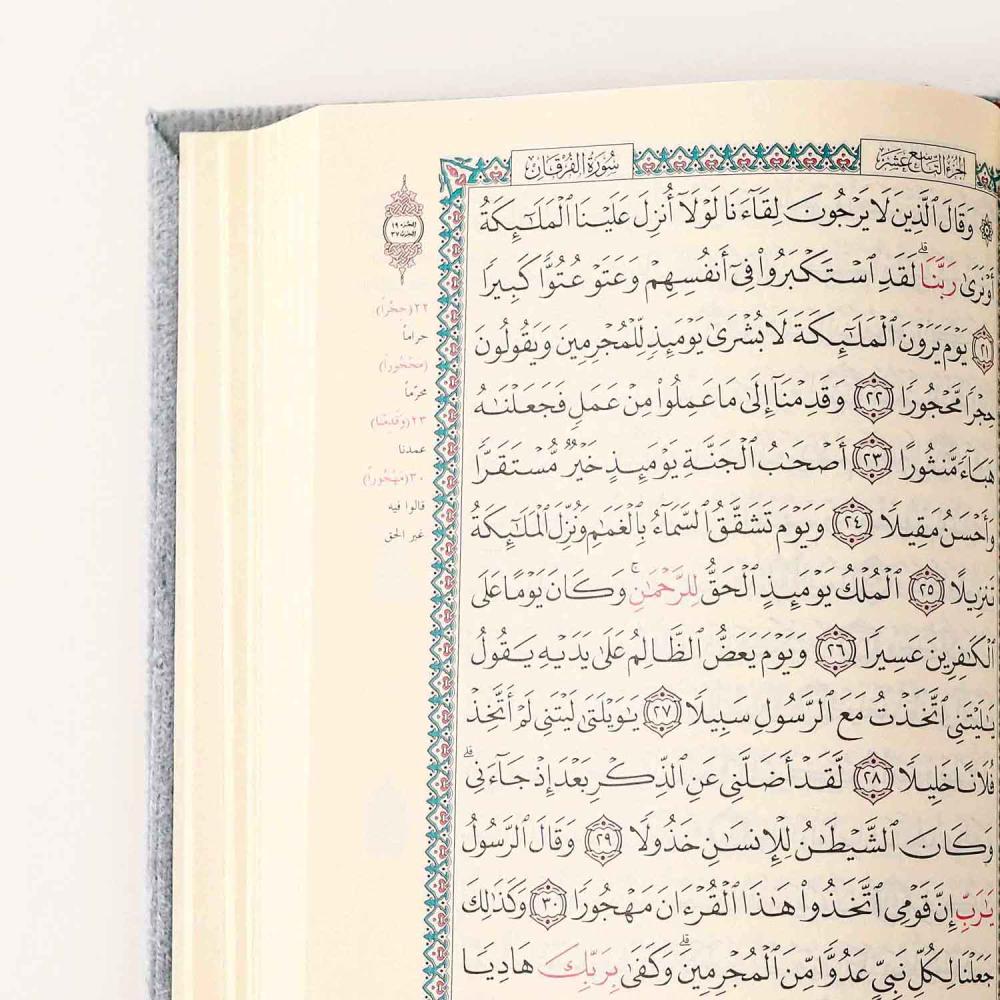 الجزء التاسع عشر
سورة الفرقان
وَقَالَ ٱلَّذِينَ لَا يَرْجُونَ لِقَآءَنَا لَوْلَآ أُنزِلَ عَلَيْنَا ٱلْمَلَـٰٓئِكَةُ
أَوْ نَرَىٰ رَبَّنَا ۗ لَقَدِ ٱسْتَكْبَرُوا۟ فِىٓ أَنفُسِهِمْ وَعَتَوْ عُتُوًّا كَبِيرًا
٢١ يَوْمَ يَرَوْنَ ٱلْمَلَـٰٓئِكَةَ لَا بُشْرَىٰ يَوْمَئِذٍ لِّلْمُجْرِمِينَ وَيَقُولُونَ
حِجْرًا مَّحْجُورًا ٢٢ وَقَدِمْنَآ إِلَىٰ مَا عَمِلُوا۟ مِنْ عَمَلٍ فَجَعَلْنَـٰهُ
هَبَآءً مَّنثُورًا ٢٣ أَصْحَـٰبُ ٱلْجَنَّةِ يَوْمَئِذٍ خَيْرٌ مُّسْتَقَرًّا
وَأَحْسَنُ مَقِيلًا ٢٤ وَيَوْمَ تَشَقَّقُ ٱلسَّمَآءُ بِٱلْغَمَـٰمِ وَنُزِّلَ ٱلْمَلَـٰٓئِكَةُ
تَنزِيلًا ٢٥ ٱلْمُلْكُ يَوْمَئِذٍ ٱلْحَقُّ لِلرَّحْمَـٰنِ ۚ وَكَانَ يَوْمًا عَلَى
ٱلْكَـٰفِرِينَ عَسِيرًا ٢٦ وَيَوْمَ يَعَضُّ ٱلظَّالِمُ عَلَىٰ يَدَيْهِ يَقُولُ
يَـٰلَيْتَنِى ٱتَّخَذْتُ مَعَ ٱلرَّسُولِ سَبِيلًا ٢٧ يَـٰوَيْلَتَىٰ لَيْتَنِى لَمْ أَتَّخِذْ
فُلَانًا خَلِيلًا ٢٨ لَّقَدْ أَضَلَّنِى عَنِ ٱلذِّكْرِ بَعْدَ إِذْ جَآءَنِى ۗ
وَكَانَ ٱلشَّيْطَـٰنُ لِلْإِنسَـٰنِ خَذُولًا ٢٩ وَقَالَ ٱلرَّسُولُ
يَـٰرَبِّ إِنَّ قَوْمِى ٱتَّخَذُوا۟ هَـٰذَا ٱلْقُرْءَانَ مَهْجُورًا ٣٠ وَكَذَٰلِكَ
جَعَلْنَا لِكُلِّ نَبِىٍّ عَدُوًّا مِّنَ ٱلْمُجْرِمِينَ ۗ وَكَفَىٰ بِرَبِّكَ هَادِيًا
الجزء ١٩
الحزب ٣٧
٢٢ (حجراً)
حراماً
(محجوراً)
محرّماً
٢٣ (وقدمنا)
عمدنا
٣٠ (مهجوراً)
قالوا فيه
غير الحق